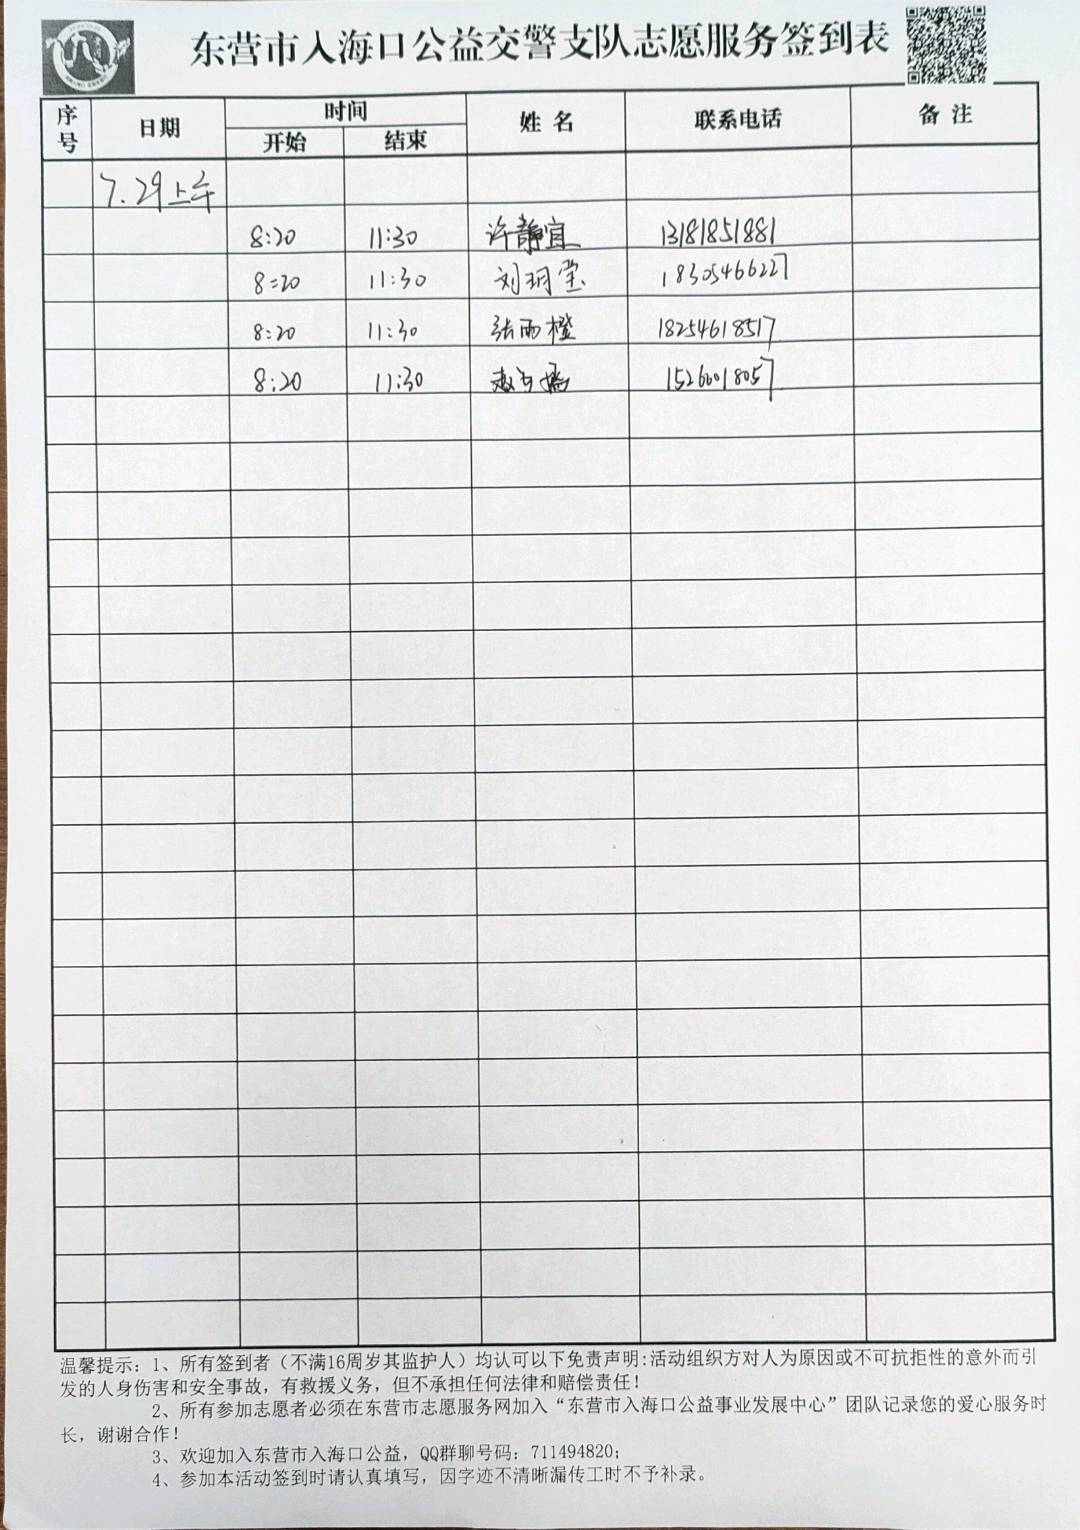 东营市入海口公益交警支队志愿服务签到表
序号 日期 时间 姓名 联系电话 备注
开始 结束
7.29上午
8:20 11:30 许静宜 13181851881
8:20 11:30 刘玥莹 18305466227
8:20 11:30 张雨橙 18254618517
8:20 11:30 15266018057
温馨提示：1、所有签到者（不满16周岁其监护人）均认可以下免责声明:活动组织方对人为原因或不可抗拒性的意外而引
发的人身伤害和安全事故，有救援义务，但不承担任何法律和赔偿责任！
2、所有参加志愿者必须在东营市志愿服务网加入“东营市入海口公益事业发展中心”团队记录您的爱心服务时
长，谢谢合作！
3、欢迎加入东营市入海口公益，QQ群聊号码：711494820；
4、参加本活动签到时请认真填写，因字迹不清晰漏传工时不予补录。